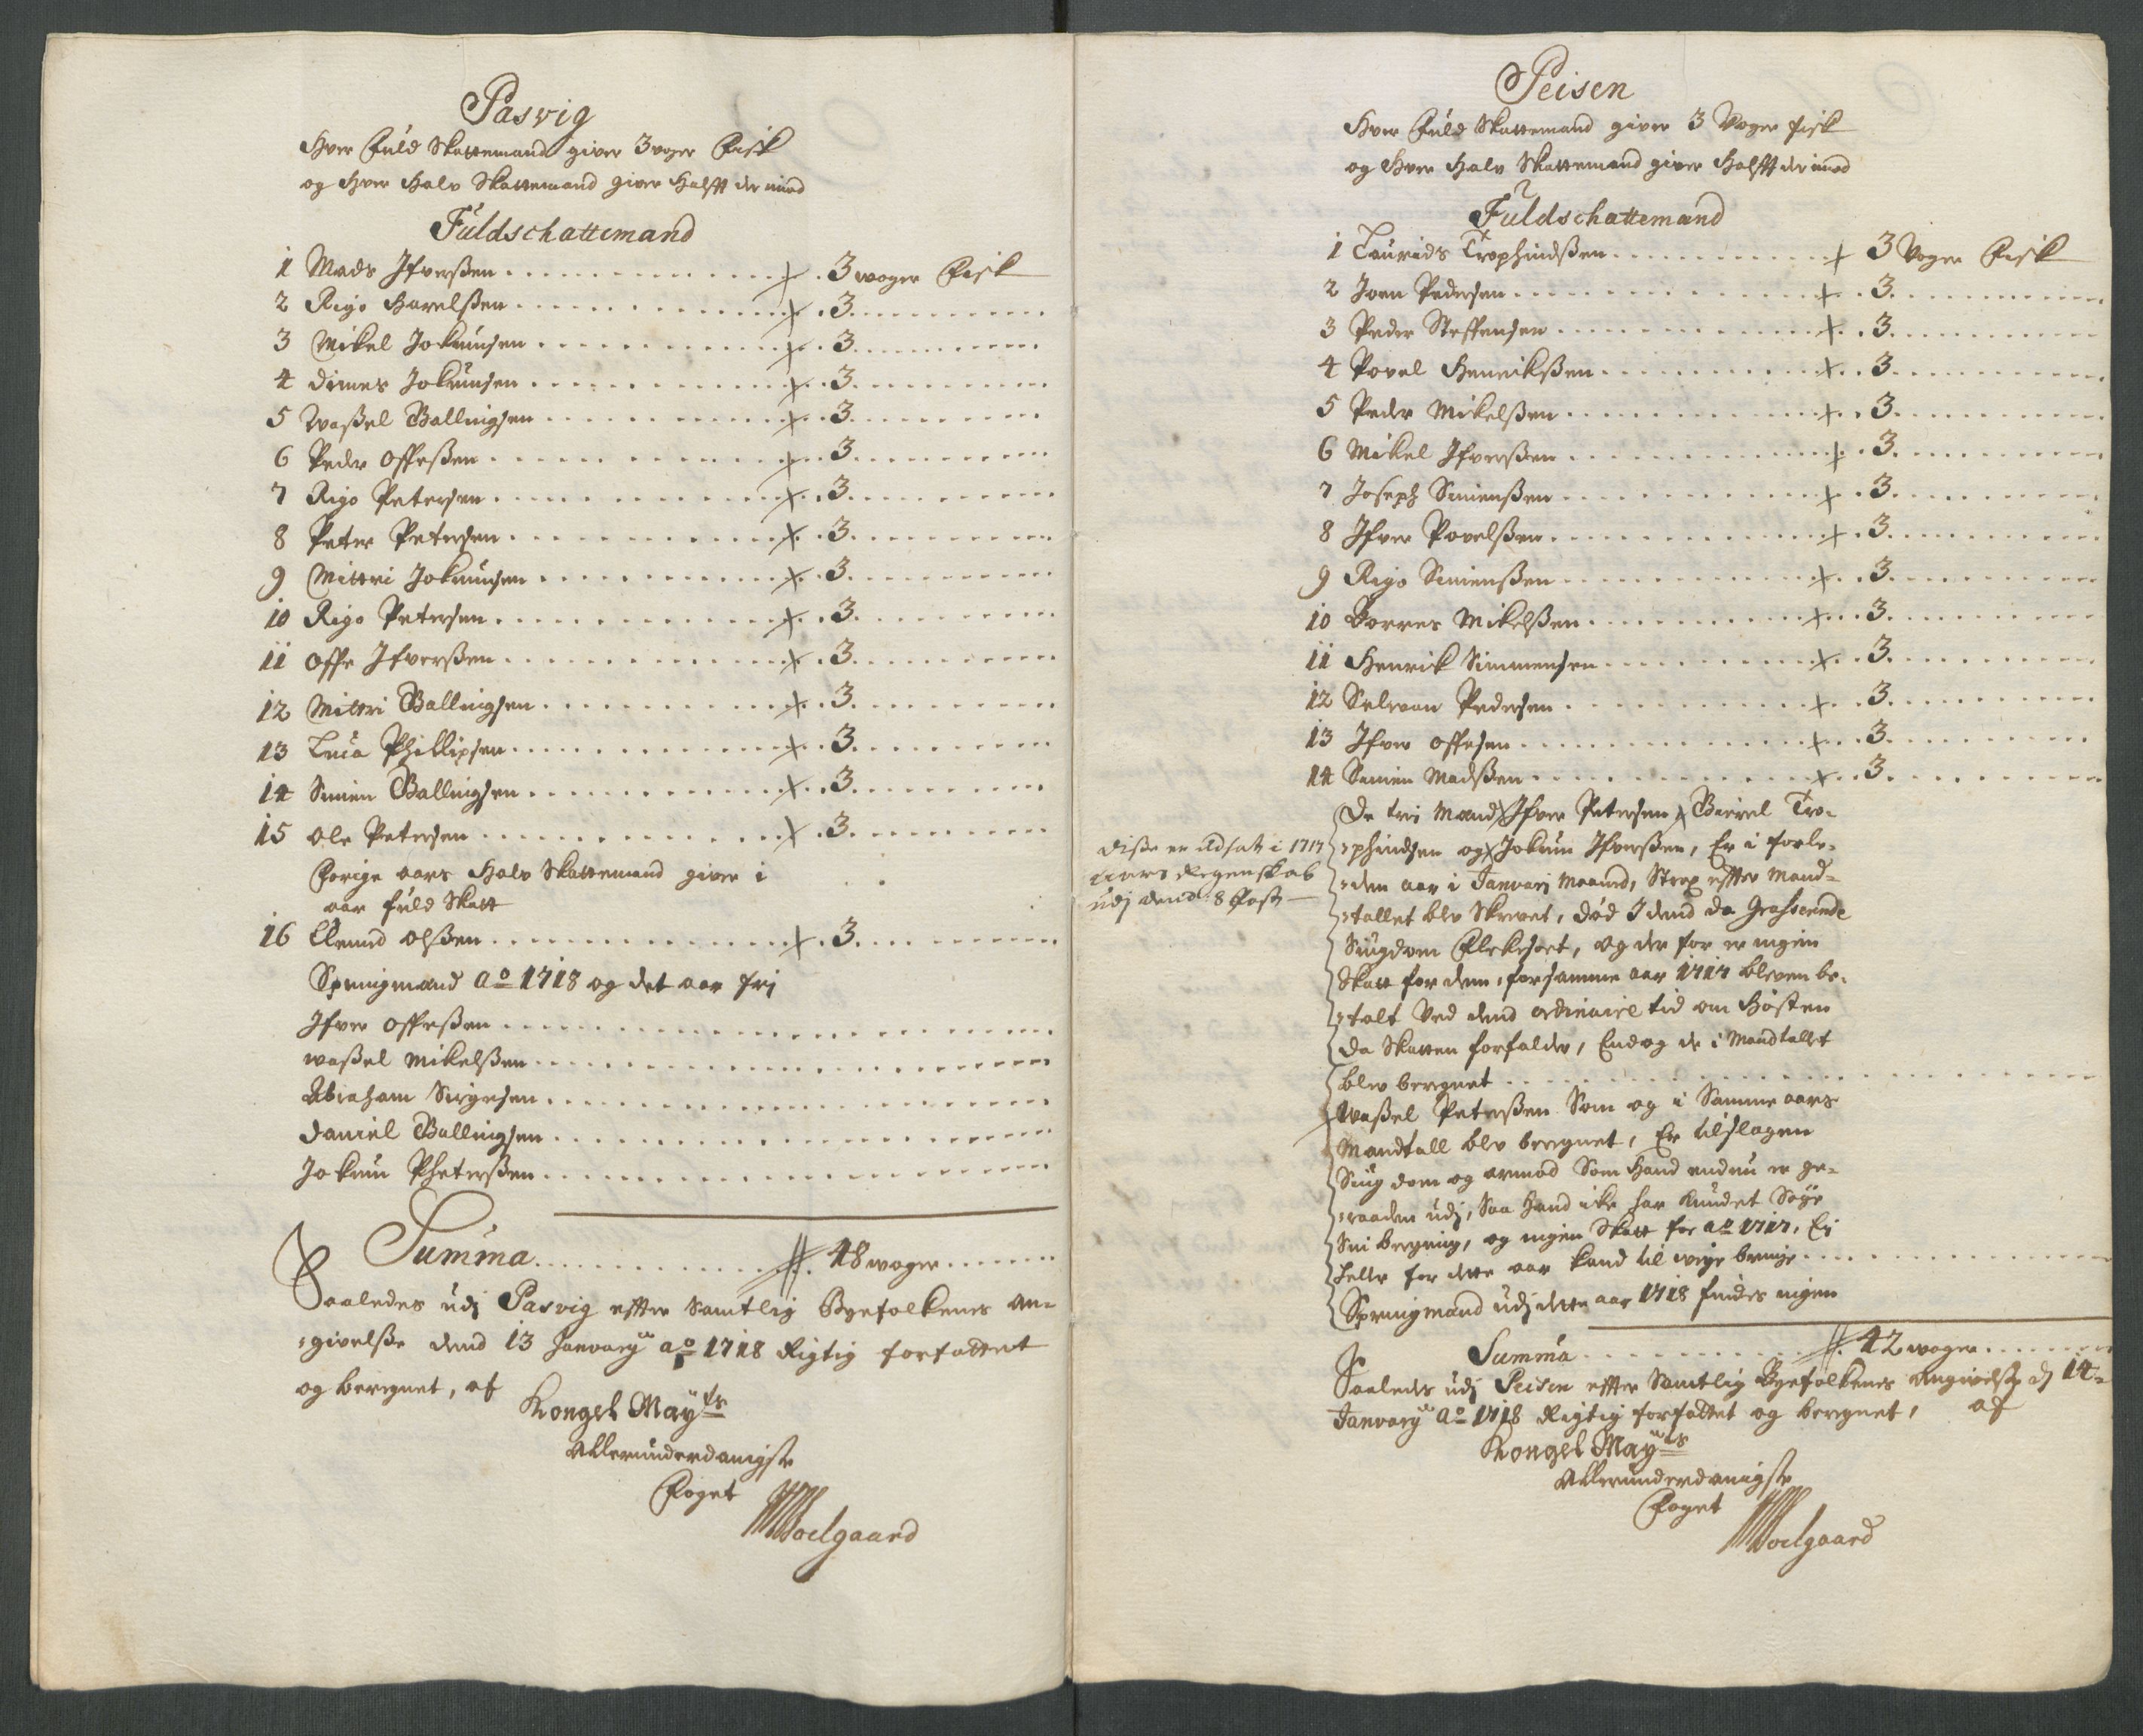 Pasvig
Hver Fuld Skattemand giver 3 voger Fisk
og Hver Halv Skattemand giver Halfft der imod
Fuldschattemand
1 Mads Ifverßen 3 woger Fisk
2 Rigo Havelßen 3
3 Mikel Jokumsen 3
4 Dimes Jokumsen 3
5 Waßel Ballingsen 3
6 Peder Offeßen 3
7 Rigo Petersen 3
8 Peter Petersen 3
9 Mittri Jokumsen 3
10 Rigo Petersen 3
11 Offe Ifverßen 3
12 Mittri Ballingsen 3
13 Luca Phillipsen 3
14 Simen Ballingsen 3
15 Ole Petersen 3
Forige aars Halv Skattemand giver i
aar fuld Skatt
16 Olßen 3
Springmand ao 1718 og det aar frj
Ifver Offeßen
Waßel Mikelßen
Abraham Sirgesen
Daniel Ballingsen
Jokum Pheterßen
Summa 48 woger
Saaledes udj Pasvig effter Samtlig Byefolkenes an-
givelße dend 13 Januarij ao 1718 Rigtig forfattet
og beregnet, af
Kongel Mayts
Allerunderdanigste
Foget
Soelgaard
Peisen
Hver Fuld Skattemand giver 3 Voger fisk
og Hver Halv Skattemand giver Halfft der imod
Fuldschattemand
1 Laurids Trophindßen 3 Voger Fisk
2 Joen Pedersen 3
3 Peder Steffensen 3
4 Povel Henrikßen 3
5 Peder Mikelßen 3
6 Mikel Ifverßen 3
7 Joseph Simenßen 3
8 Ifver Povelßen 3
9 Rigo Simenßen 3
10 Borres Mikelßen 3
11 Henrik Simmensen 3
12 Selvan Pedersen 3
13 Ifver Offesen 3
14 Simen Madßen 3
De tri Mand Ifver Petersen, Tro-
phindsen og Jokum Ifverßen, Er i forle-
Diße er udsatt i 1717
den aar i Januarj Maaned, Strax effter Mand-
aars Regenskab
udj dend 8 Post
tallet blev Skrevet, død I dend da Grasserende
Siugdom, og der for er ingen
Skatt for dem, for samme aar 1717 bleven be-
talt Ved dend ordinaire tid om Høsten
da Skatten forfalder, Endog de i Mandtallet
blev beregnet
Waßel Peterßen Som og i Samme aars
Mandtall blev beregnet, Er tilslagen
Siugdom og armod Som Hand endnu er ge-
raaden udj, Saa Hand icke har kundet Søge
Sin bergning, og ingen Skatt for ao 1717, Ej
heller for dette aar kand til weye bringe
Springmand udj dette aar 1718 findes ingen
Summa 42 woger
Saaledes udj Peisen effter Samtlig Byefolkenes angivelße dj 14
Januarij ao 1718 Rigtig forfattet og beregnet, af
Kongel Mayts
Allerunderdanigste
Foget
Soelgaard